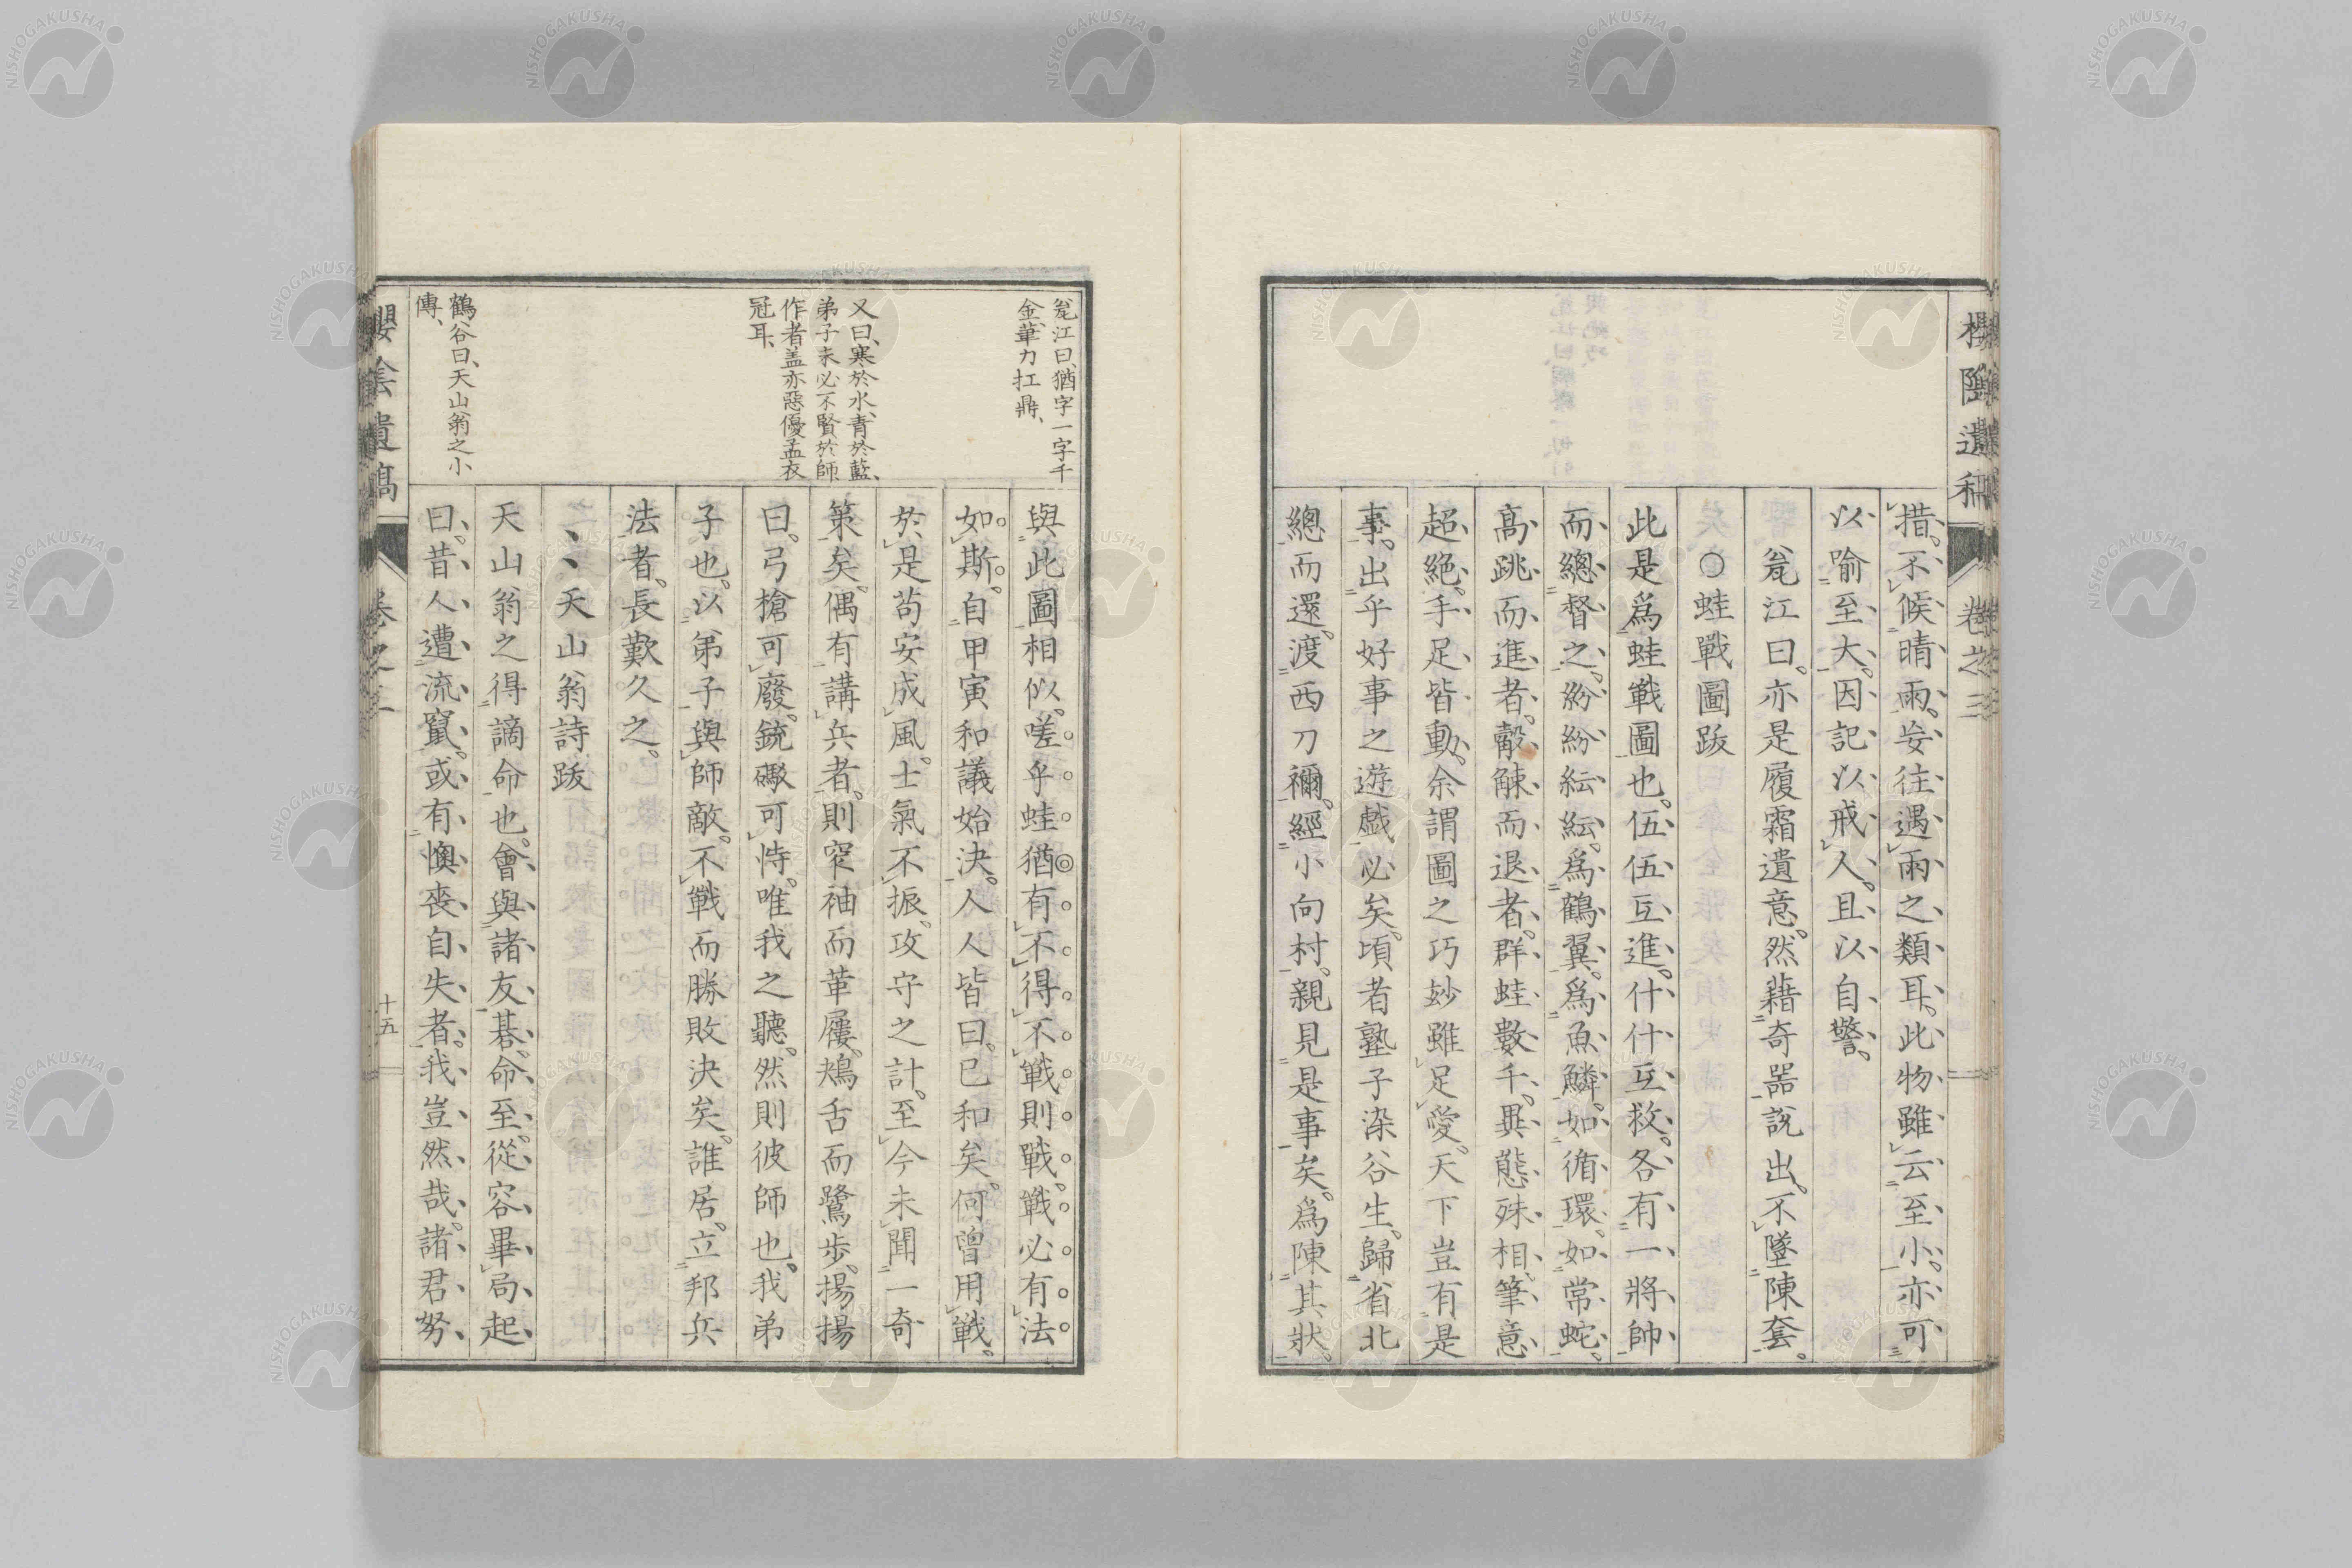 措。不候晴雨。妄往遇雨之類耳。此物雖云至小。亦可
以喻至大。因記以戒人。且以自警。
甕江曰。亦是履霜遺意。然藉奇器說出。不墜陳套。
○蛙戰圖跋
此是爲蛙戰圖也。伍伍互進。什什互救。各有一將帥
而總督之。紛紛紜紜。爲鶴翼。爲魚鱗。如循環。如常蛇。
高跳而進者。觳觫而退者。群蛙數千。異態殊相。筆意
超絕。手足皆動。余謂圖之巧玅雖足愛。天下豈有是
事。出乎好事之遊戲必矣。頃者塾子染谷生。歸省北
總而還。渡西刀禰。經小向村。親見是事矣。爲陳其狀。
甕江曰、猶字一字千
金、筆力扛鼎、
又曰、寒於水、靑於藍、
弟子未必不賢於師
作者盖亦惡優孟衣
冠耳、
鶴谷曰、天山翁之小
傳、
與此圖相似。嗟乎蛙猶有不得不戰則戰。戰必有法
如斯。自甲寅和議始決。人人皆曰。已和矣。何曾用戰。
於是苟安成風。士氣不振。攻守之計。至今未聞一奇
策矣。偶有講兵者。則窄袖而革屨。鴂舌而鷺步。揚揚
曰。弓槍可廢。銃礮可恃。唯我之聽。然則彼師也。我弟
子也。以弟子與師敵。不戰而勝敗決矣。誰居。立邦兵
法者。長歎久之。
、、天山翁詩跋
天山翁之得謫命也。會與諸友碁。命至。從容畢局起
曰。昔人遭流竄。或有懊喪自失者。我豈然哉。諸君努
櫻陰遺稿
卷之三
十五